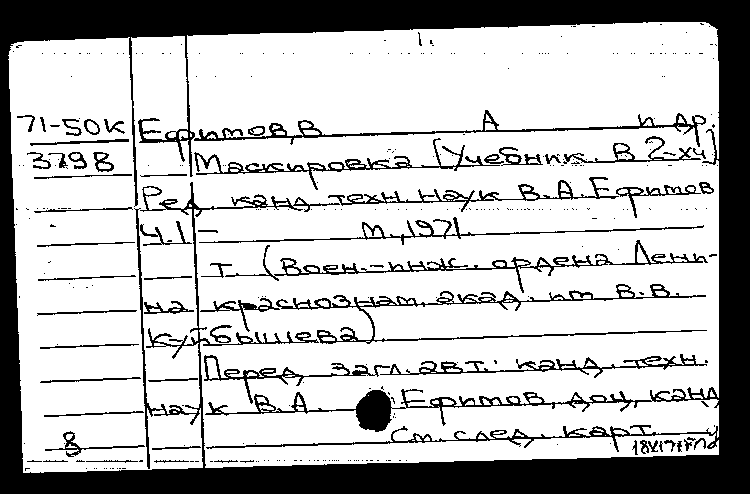 1.
71-50К Ефимов, В А и др.
3798 Маскировка [Учебник. В 2-х ч]
Ред. канд техн. наук В. А. Ефимов
Ч. 1 - М., 1971.
т. (Воен.-инж. ордена Лени-
на краснознам. акад. им В. В.
Куйбышева)
Перед загл. авт.: канд. техн.
наук В. А. Ефимов, доц, канд
См. след. карт.
8